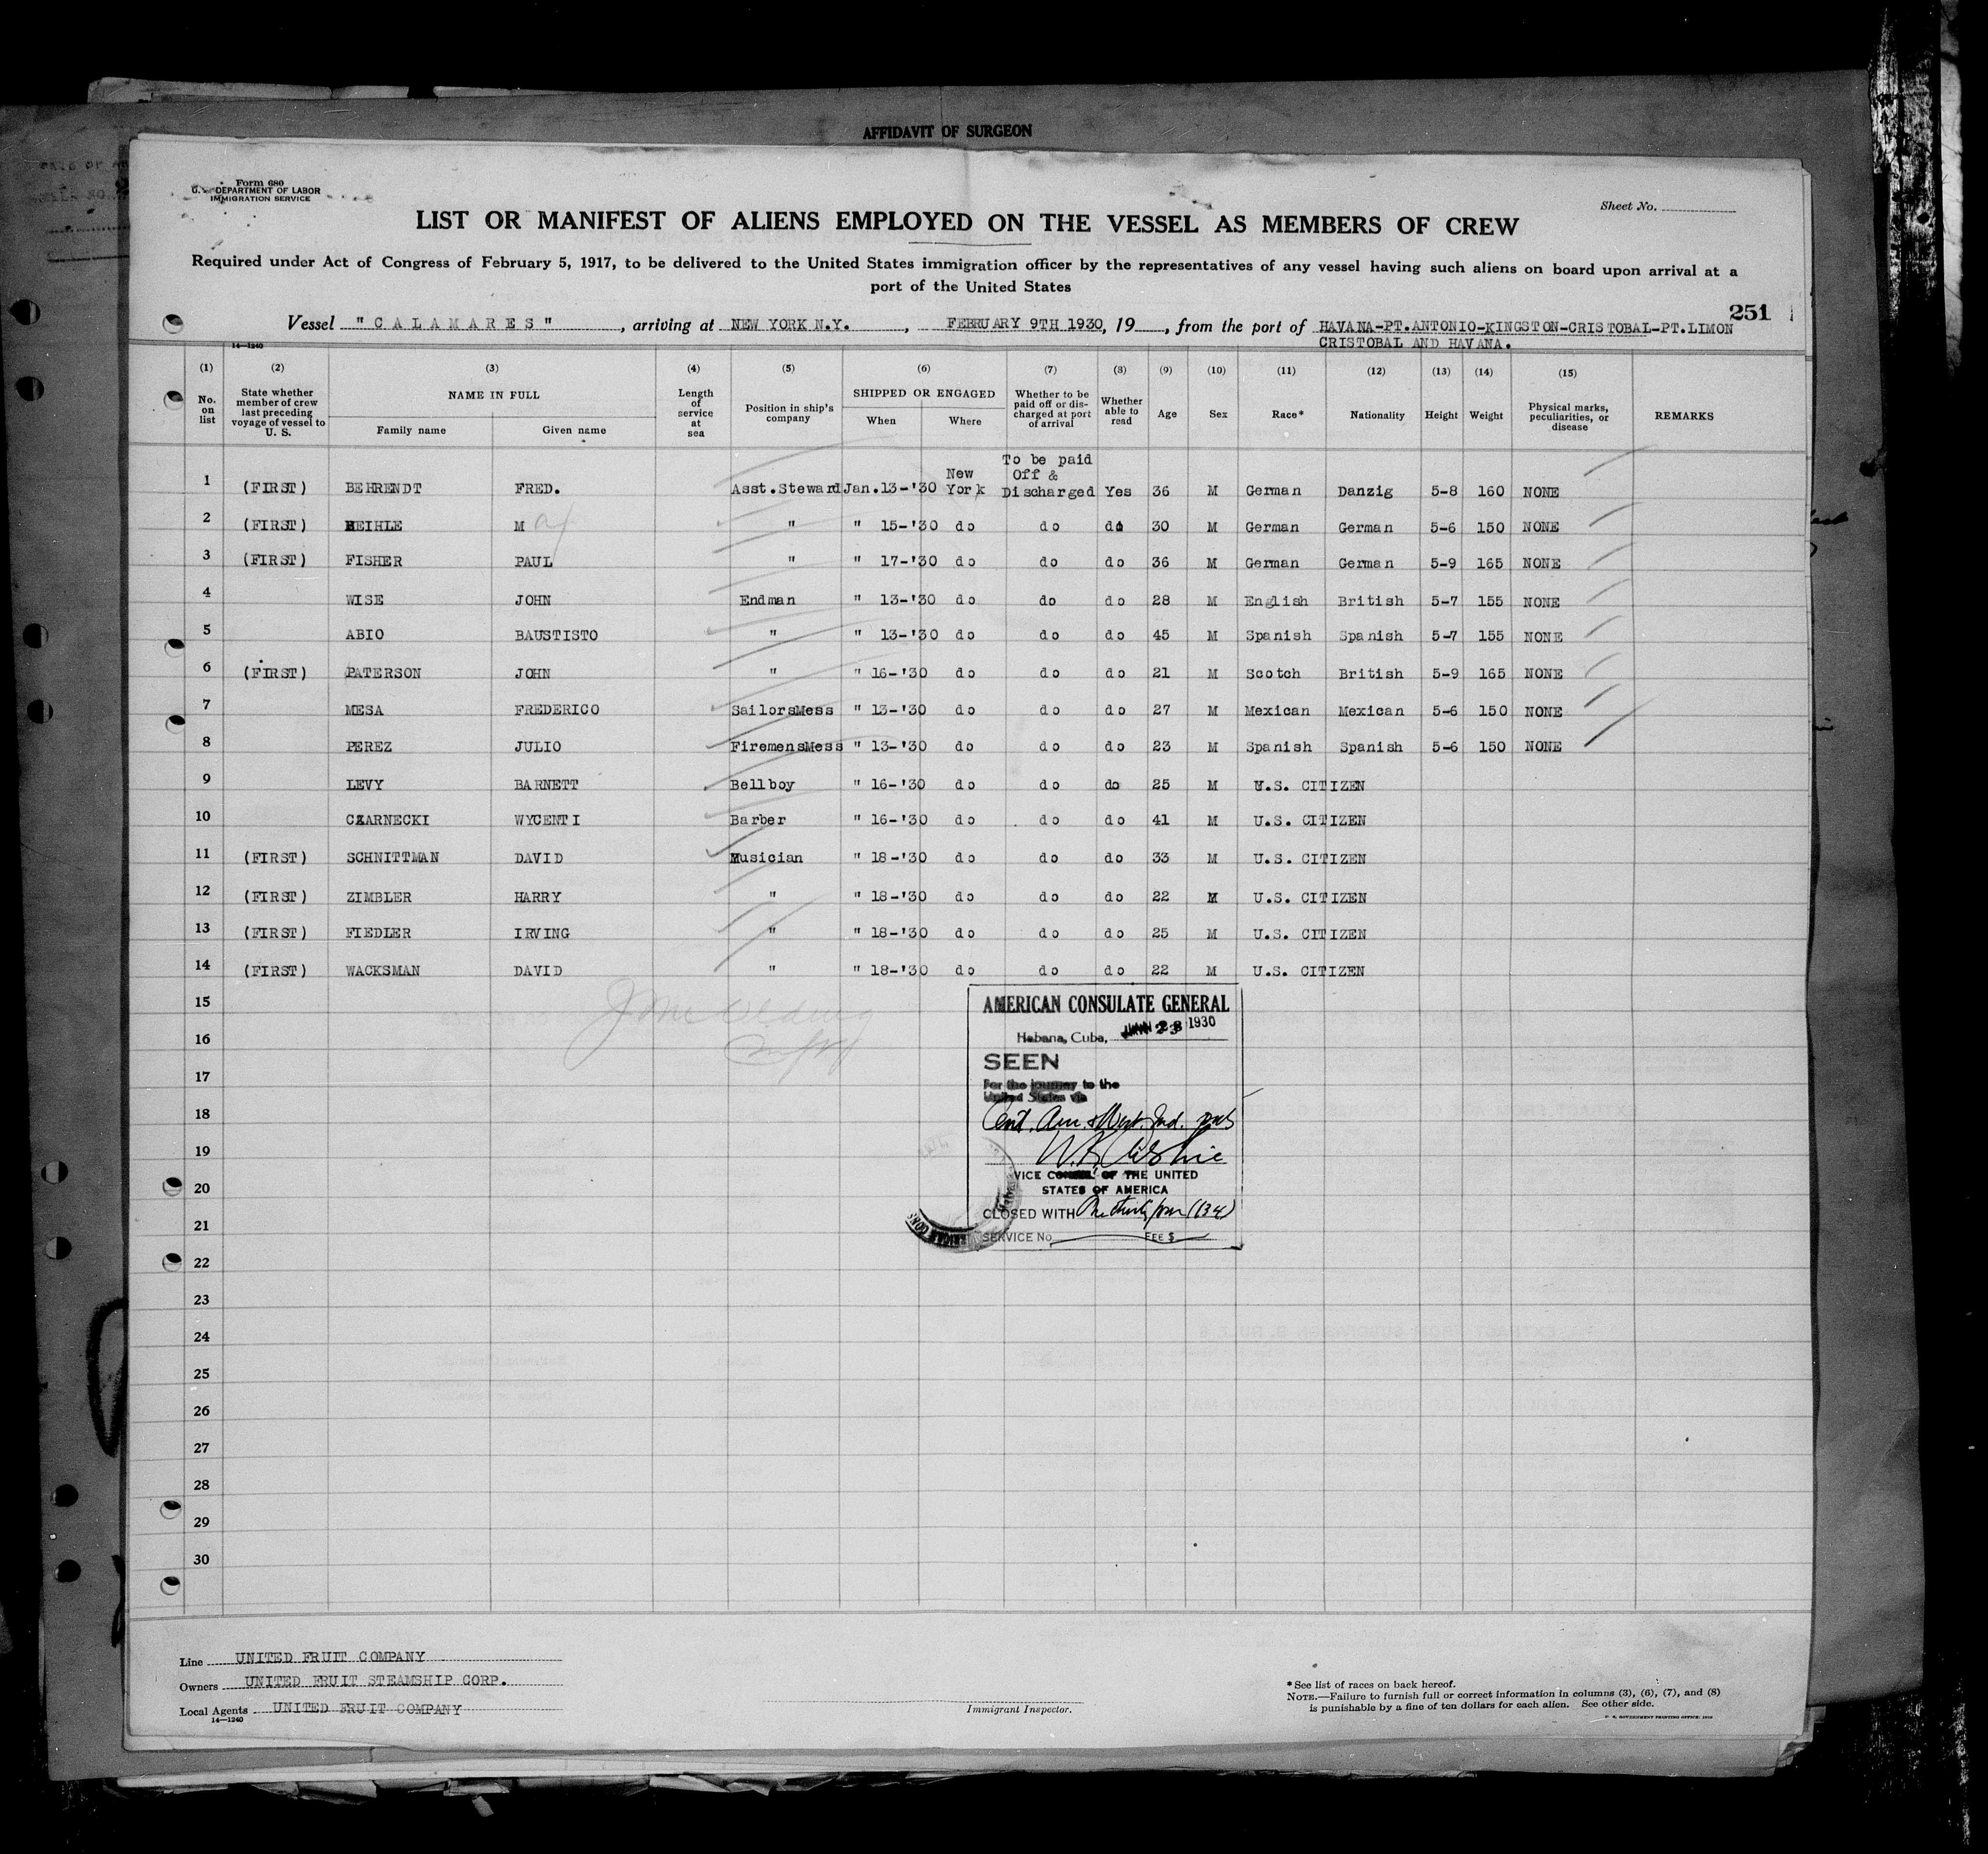 AFFIDAVIT OF SURGEON
Form 680
U. S. DEPARTMENT OF LABOR
IMMIGRATION SERVICE
Sheet No.
LIST OR MANIFEST OF ALIENS EMPLOYED ON THE VESSEL AS MEMBERS OF CREW
Required under Act of Congress of February 5, 1917, to be delivered to the United States immigration officer by the representatives of any vessel having such aliens on board upon arrival at a
port of the United States
251
Vessel "CALAMARES", arriving at NEW YORK N.Y., FEBRUARY 9TH 1930, 19, from the port of HAVANA-PT.ANTONIO-KINGSTON-CRISTOBAL-PT.LIMON
CRISTOBAL AND HAVANA.
14—1240
(1) (2) (3) (4) (5) (6) (7) (8) (9) (10) (11) (12) (13) (14) (15)
No. on list
State whether member of crew last preceding voyage of vessel to U. S.
NAME IN FULL
Family name
Given name
Length of service at sea
Position in ship's company
SHIPPED OR ENGAGED
When
Where
Whether to be paid off or discharged at port of arrival
Whether able to read
Age
Sex
Race*
Nationality
Height
Weight
Physical marks, peculiarities, or disease
REMARKS
1 (FIRST) BEHRENDT FRED. Asst.Steward Jan.13-'30 New York To be paid Off & Discharged Yes 36 M German Danzig 5-8 160 NONE
2 (FIRST) HEIHLE M " " 15-'30 do do do 30 M German German 5-6 150 NONE
3 (FIRST) FISHER PAUL " " 17-'30 do do do 36 M German German 5-9 165 NONE
4 WISE JOHN Endman " 13-'30 do do do 28 M English British 5-7 155 NONE
5 ABIO BAUSTISTO " " 13-'30 do do do 45 M Spanish Spanish 5-7 155 NONE
6 (FIRST) PATERSON JOHN " " 16-'30 do do do 21 M Scotch British 5-9 165 NONE
7 MESA FREDERICO SailorsMess " 13-'30 do do do 27 M Mexican Mexican 5-6 150 NONE
8 PEREZ JULIO FiremensMess " 13-'30 do do do 23 M Spanish Spanish 5-6 150 NONE
9 LEVY BARNETT Bellboy " 16-'30 do do do 25 M U.S. CITIZEN
10 CZARNECKI WYCENTI Barber " 16-'30 do do do 41 M U.S. CITIZEN
11 (FIRST) SCHNITTMAN DAVID Musician " 18-'30 do do do 33 M U.S. CITIZEN
12 (FIRST) ZIMBLER HARRY " " 18-'30 do do do 22 M U.S. CITIZEN
13 (FIRST) FIEDLER IRVING " " 18-'30 do do do 25 M U.S. CITIZEN
14 (FIRST) WACKSMAN DAVID " " 18-'30 do do do 22 M U.S. CITIZEN
15
16
17
18
19
20
21
22
23
24
25
26
27
28
29
30
AMERICAN CONSULATE GENERAL
Habana, Cuba, 1930
SEEN
For the journey to the
United States via
Cent. Am. & West. Ind. ports
VICE CONSUL OF THE UNITED
STATES OF AMERICA
CLOSED WITH One thirty four (134)
SERVICE No. FEE $
Line UNITED FRUIT COMPANY
Owners UNITED FRUIT STEAMSHIP CORP.
Local Agents UNITED FRUIT COMPANY
14—1240
Immigrant Inspector.
*See list of races on back hereof.
NOTE.—Failure to furnish full or correct information in columns (3), (6), (7), and (8)
is punishable by a fine of ten dollars for each alien. See other side.